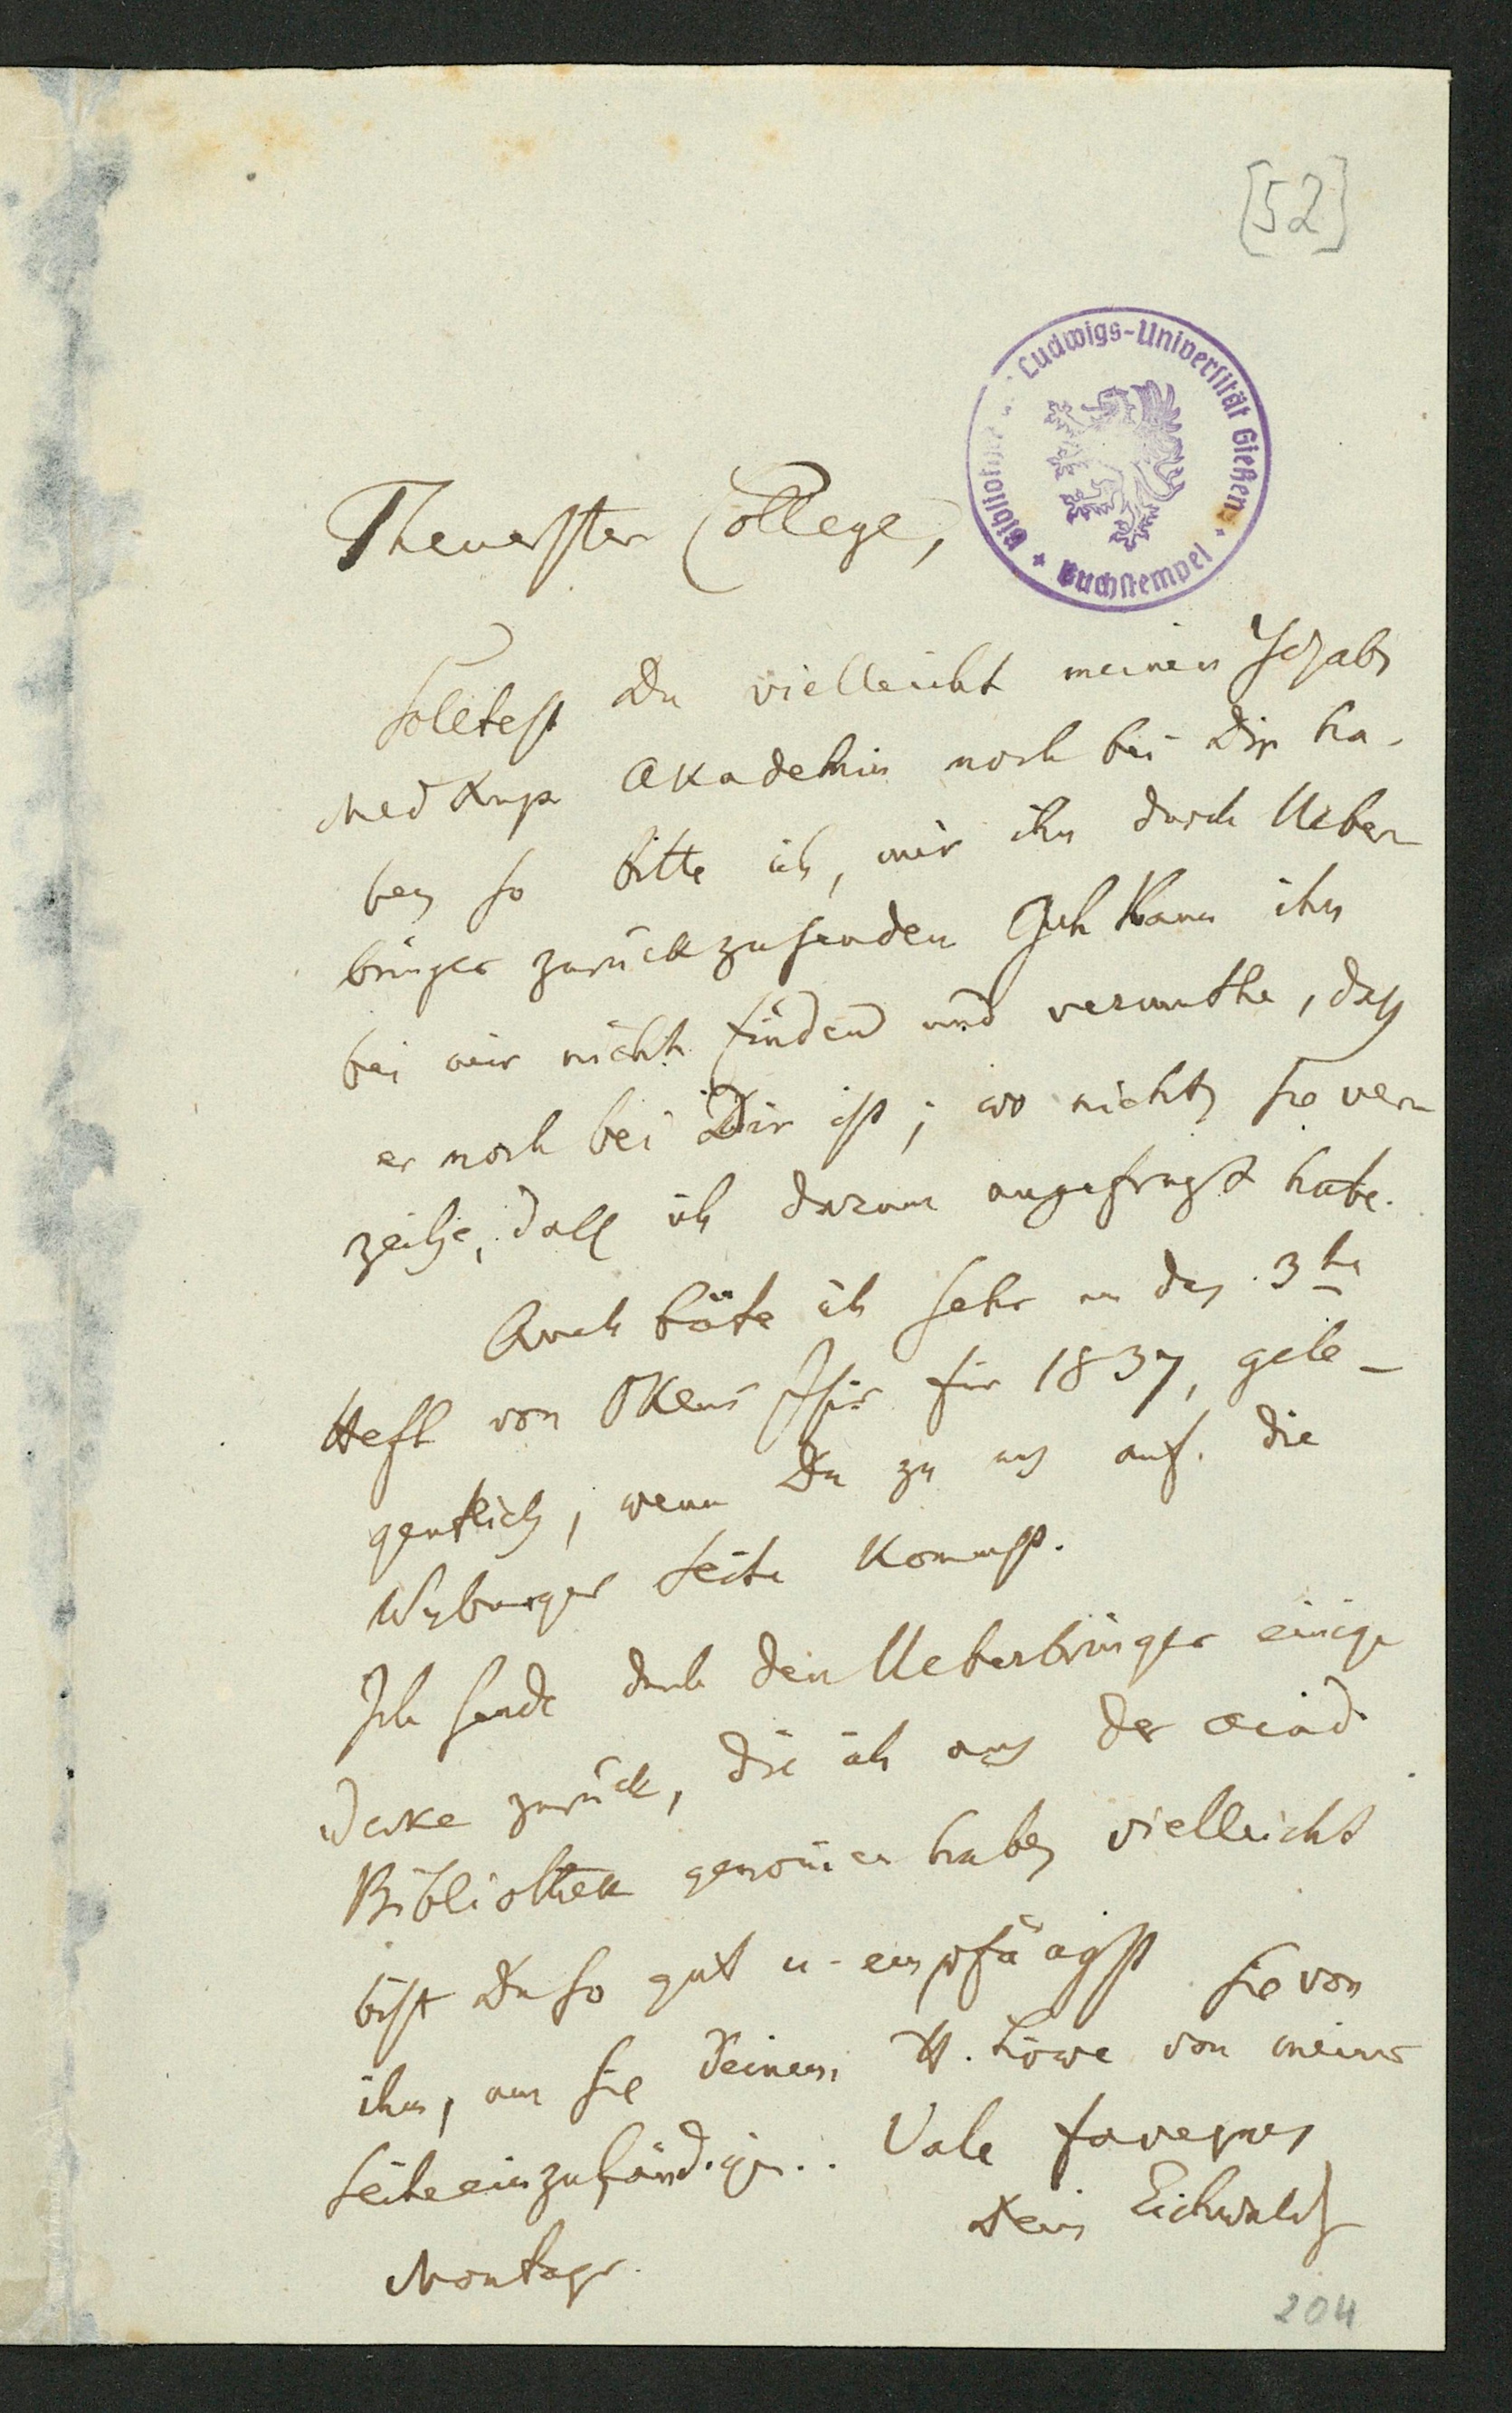 [52]
Ludwigs-Universität Gießen
Buchstempel
Theuerster College,
Solltest Du vielleicht meinen
Akademie noch bei Dir ha-
ben so bitte ich, mir ihn durch Ueber-
bringer zurückzusenden Ich kann ihn
bei mir nicht finden und vermuthe, daß
er noch bei Dir ist; wo nicht, so ver-
zeihe, daß ich darum angefragt habe.
Auch bäte ich sehr um das 3te
Heft von Okens Isis für 1837, gele-
gentlich, wenn Du zu uns auf die
Wyburger Seite kommst.
Ich sende durch den Ueberbringer einige
Werke zurück, die ich aus der Acad
Bibliothek genommen habe, vielleicht
bist Du so gut u. empfängst sie von
ihm, um sie Deinem H. Löwe von meiner
Seite einzuhändigen.. Vale faveque
Dein Eichwald
Montags.
204